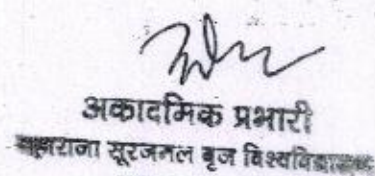 अकादमिक प्रभारी
महाराजा सूरजमल बृज विश्वविद्यालय